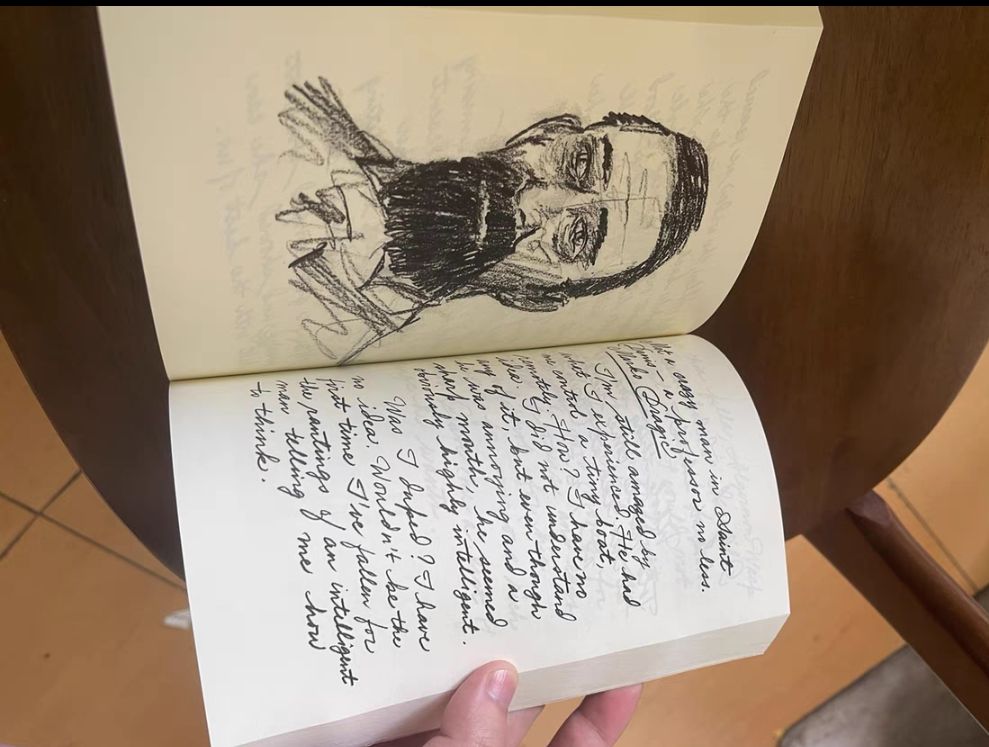 Met a crazy man in Saint
Denis - a professor no less.
Marko Dragic
I'm still amazed by
what I experienced. He had
me control a tiny boat,
remotely. How? I have no
idea. I did not understand
any of it, but even though
he was annoying and a
sharp mouth, he seemed
obviously highly intelligent.
Was I duped? I have
no idea. Wouldn't be the
first time I've fallen for
the rantings of an intelligent
man telling me how
to think.